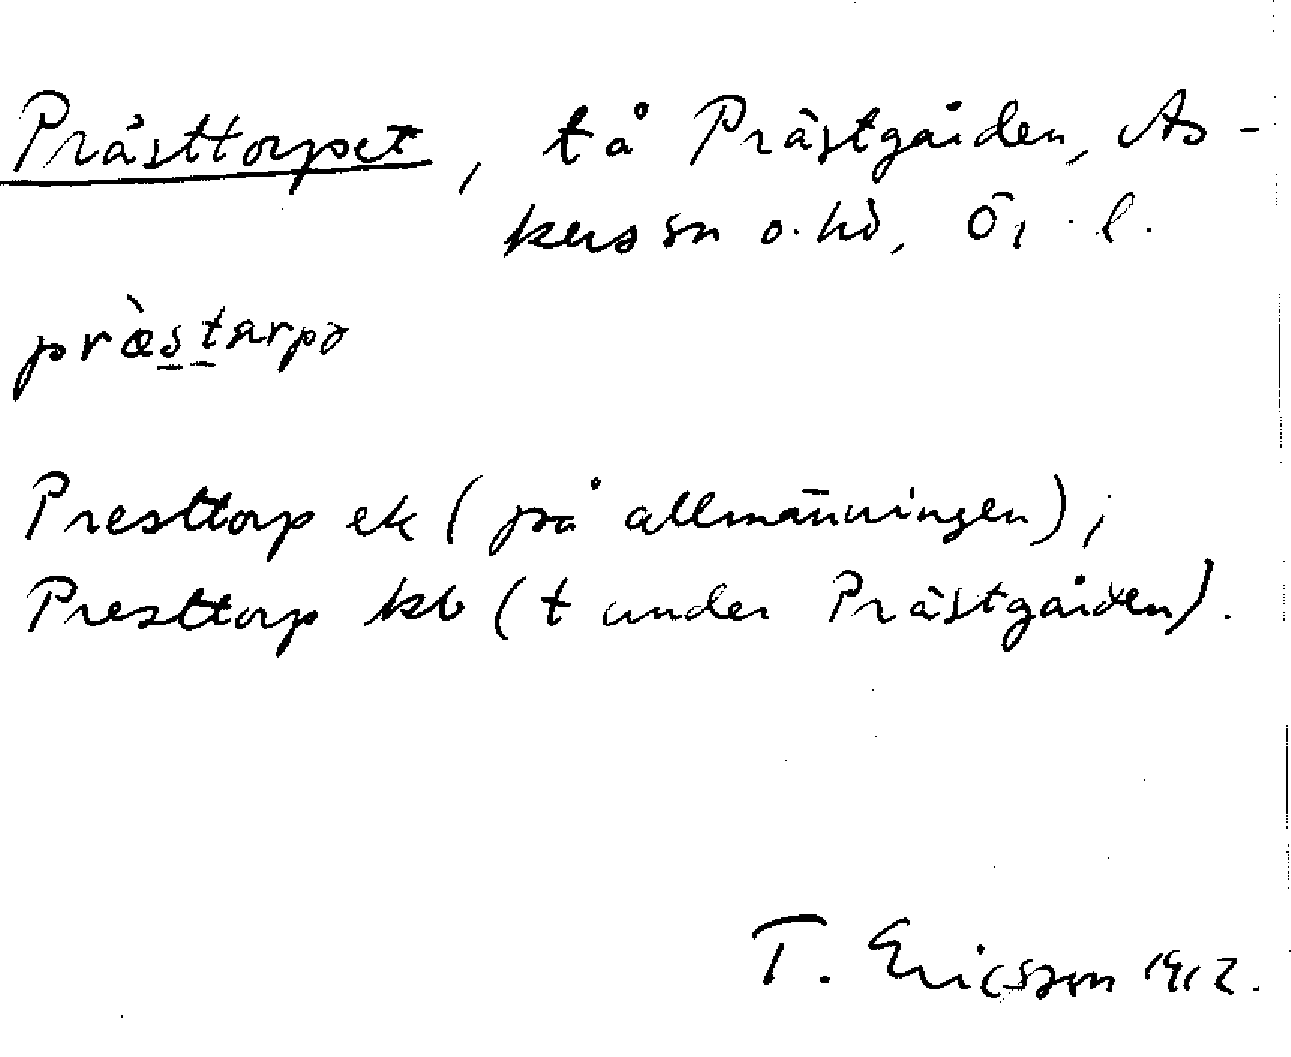 Prästtorpet, t å Prästgården, As-
kers sn o. hd, Ör. l.
præ̀starpə
Presttorp ek (på allmänningen);
Presttorp kb (t under Prästgården).
T. Ericsson 1912.